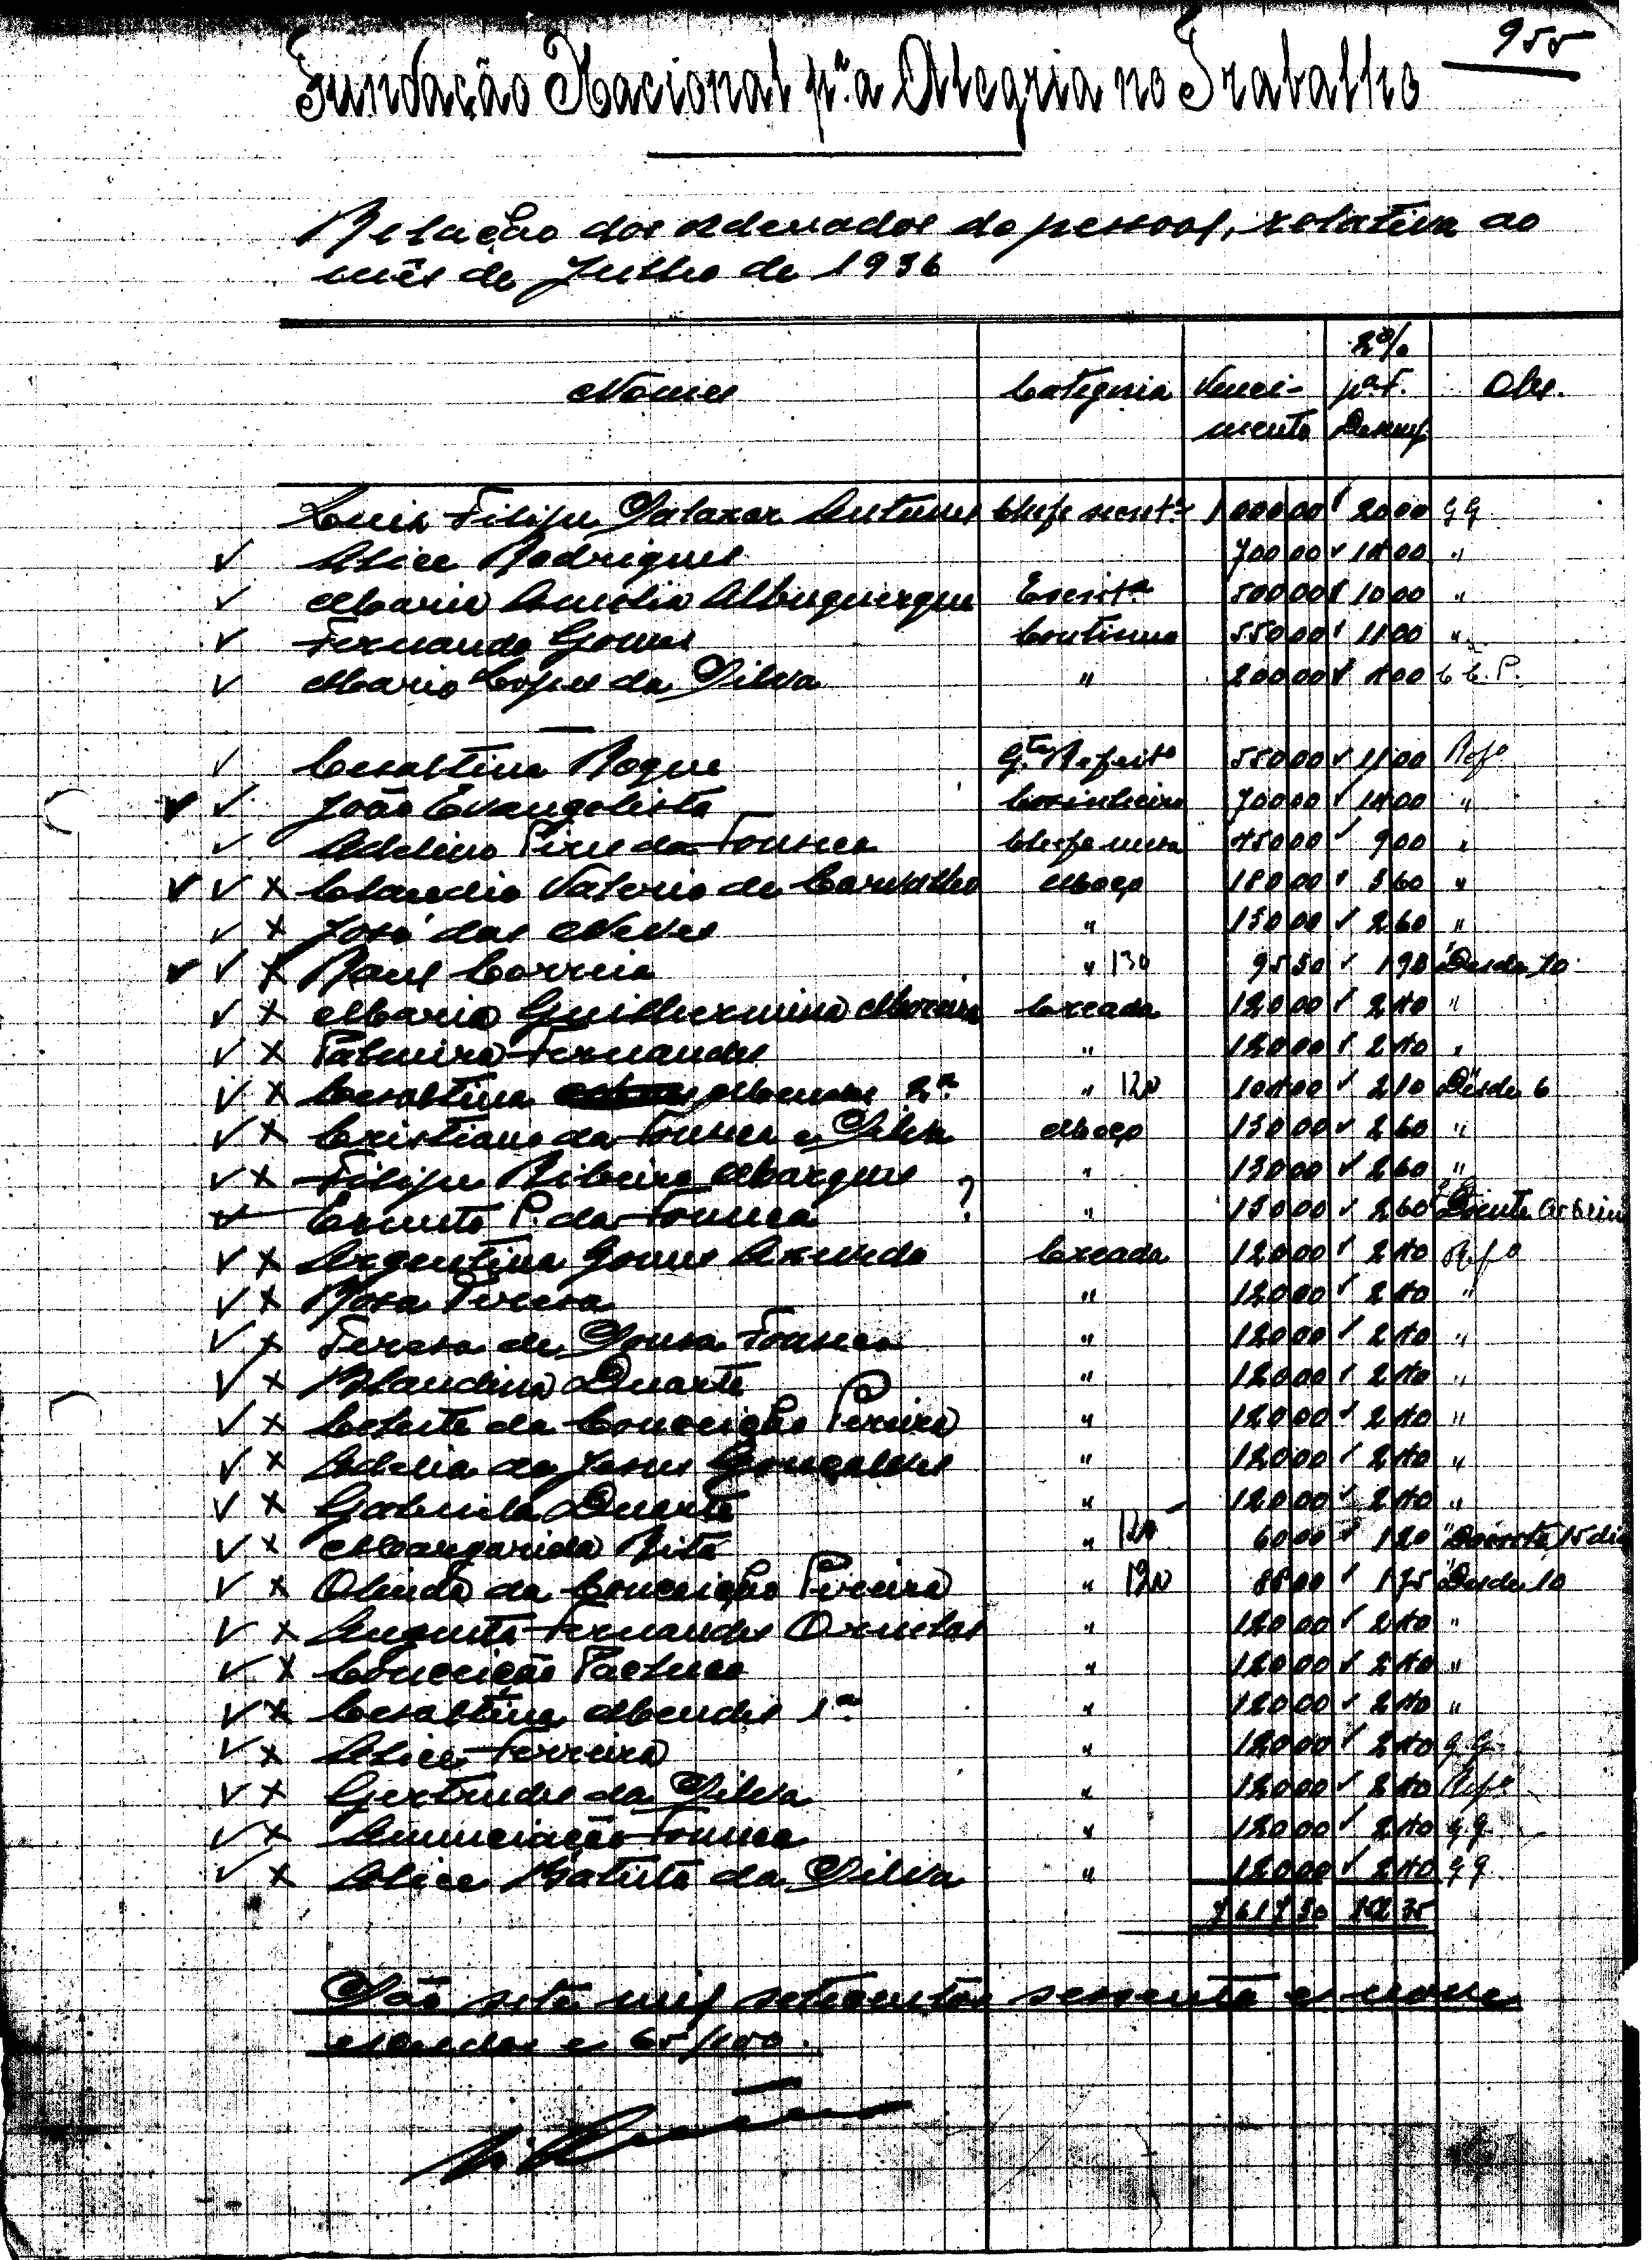 955
Fundação Nacional pª a Alegria no Trabalho
Relação dos ordenados do pessoal, relativa ao
mês de Julho de 1936
Nomes Categoria Venci-mento 2% pª F. Desemp. Obs.
Luis Filipe Salazar Antunes Chefe secretª 1 000 00 20 00 G G
Alice Rodrigues 700 00 14 00 "
Maria Amelia Albuquerque Escritª 500 00 10 00 "
Fernando Gomes Continuo 550 00 11 00 "
Mario Lopes da Silva " 200 00 4 00 C. P.
Cesaltina Roque Gte Refeito 550 00 11 00 Refº
João Evangelista Cosinheiro 700 00 14 00 "
Adelino Pires da Fonseca Chefe mesa 450 00 9 00 "
Claudio Valerio de Carvalho Moço 180 00 3 60 "
José das Neves " 130 00 2 60 "
Raul Correia " 130 95 30 1 90 " Desde 10
Maria Guilhermina Moreira Creada 120 00 2 40 "
Palmira Fernandes " 120 00 2 40 "
Cesaltina Mendes 2ª " 120 104 00 2 10 " Desde 6
Cristiano da Fonseca e Silva Moço 130 00 2 60 "
Filipe Ribeiro Marques " 130 00 2 60 "
Ernesto P. da Fonseca ? " 130 00 2 60 Doente
Argentina Gomes Azevedo Creada 120 00 2 40 Refº
Rosa Pereira " 120 00 2 40 "
Teresa de Sousa Fonseca " 120 00 2 40 "
Blandina Duarte " 120 00 2 40 "
Celeste da Conceição Pereira " 120 00 2 40 "
Adelia de Jesus Gonçalves " 120 00 2 40 "
Gabriela Duarte " 120 00 2 40 "
Margarida Rita " 120 60 00 1 20 " 15 dias
Olinda da Conceição Pereira " 120 88 00 1 75 " Desde 10
Augusta Fernandes Ornelas " 120 00 2 40 "
Conceição Pacheco " 120 00 2 40 "
Cesaltina Mendes 1ª " 120 00 2 40 "
Alice Ferreira " 120 00 2 40 G. G.
Gertrudes da Silva " 120 00 2 40 Refº
Anunciação Fonseca " 120 00 2 40 G G
Alice Batista da Silva " 120 00 2 40 G G
7 617 30 152 35
São sete mil setecentos sessenta e nove
escudos e 65/100.